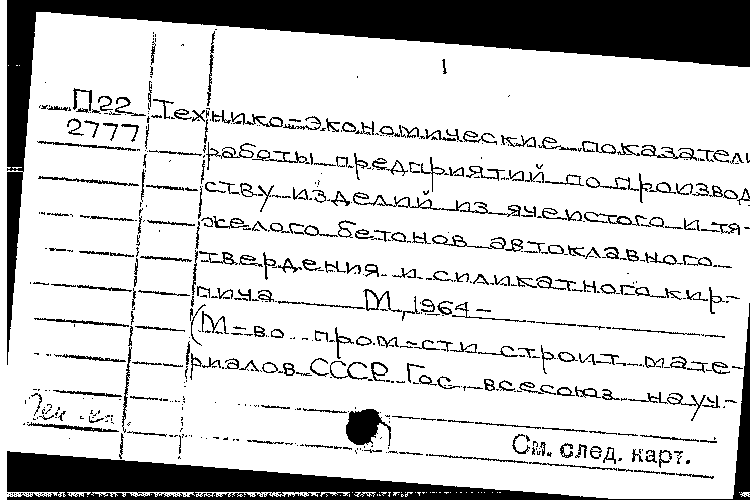 1
П22 Технико-экономические показатели
2777 работы предприятий по производ
ству изделий из ячеистого и тя-
желого бетонов автоклавного
твердения и силикатного кир-
пича М., 1964-
(М-во пром-сти строит. мате-
риалов СССР. Гос. всесоюз. науч.-
Ген. кат.
См. след. карт.